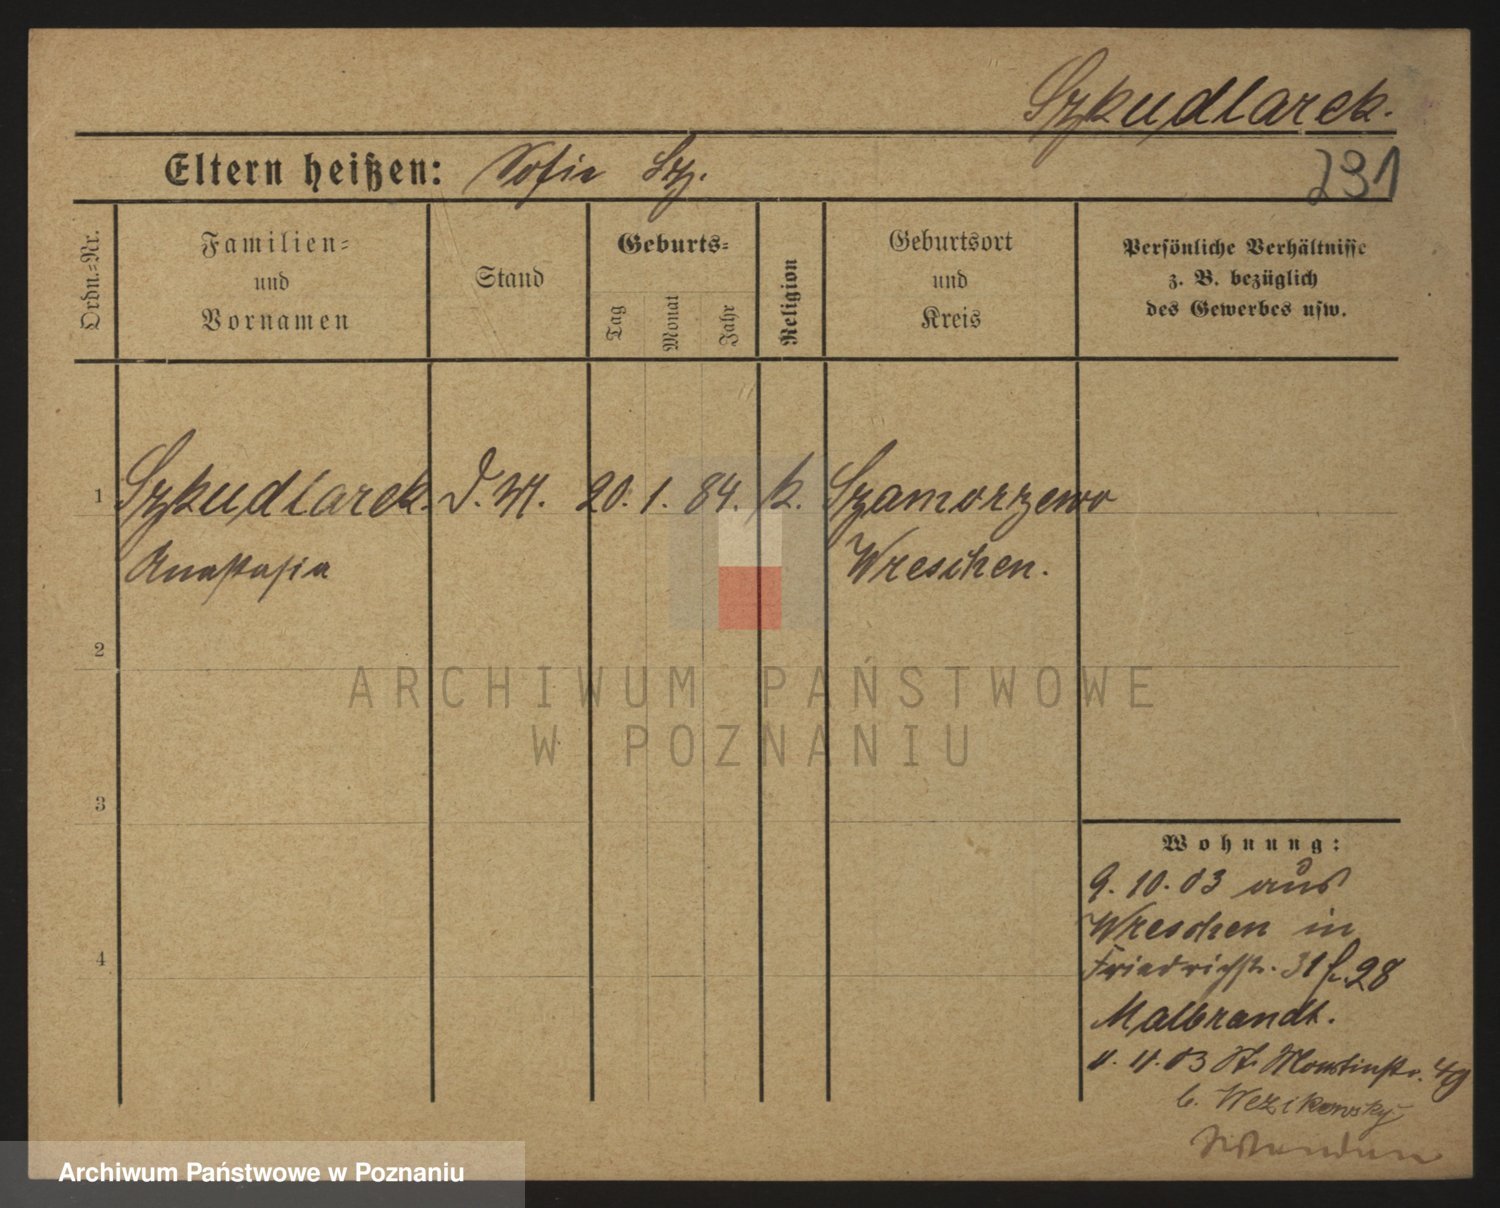 Szkudlarek.
Eltern heißen: Sofie Sz.
291
Ordn.-Nr.
Familien-
und
Vornamen
Stand
Geburts-
Tag
Monat
Jahr
Religion
Geburtsort
und
Kreis
Persönliche Verhältnisse
z. B. bezüglich
des Gewerbes usw.
1 Szkudlarek. D. M. 20. 1. 84. k. Szamorzewo
Anastasia Wreschen.
2
3
4
ARCHIWUM PAŃSTWOWE
W POZNANIU
Wohnung:
9. 10. 03 aus
Wreschen in
Friedrichstr. 31 b. 28
Malbrandt.
11. 03 St. Martinstr.
b.
Archiwum Państwowe w Poznaniu